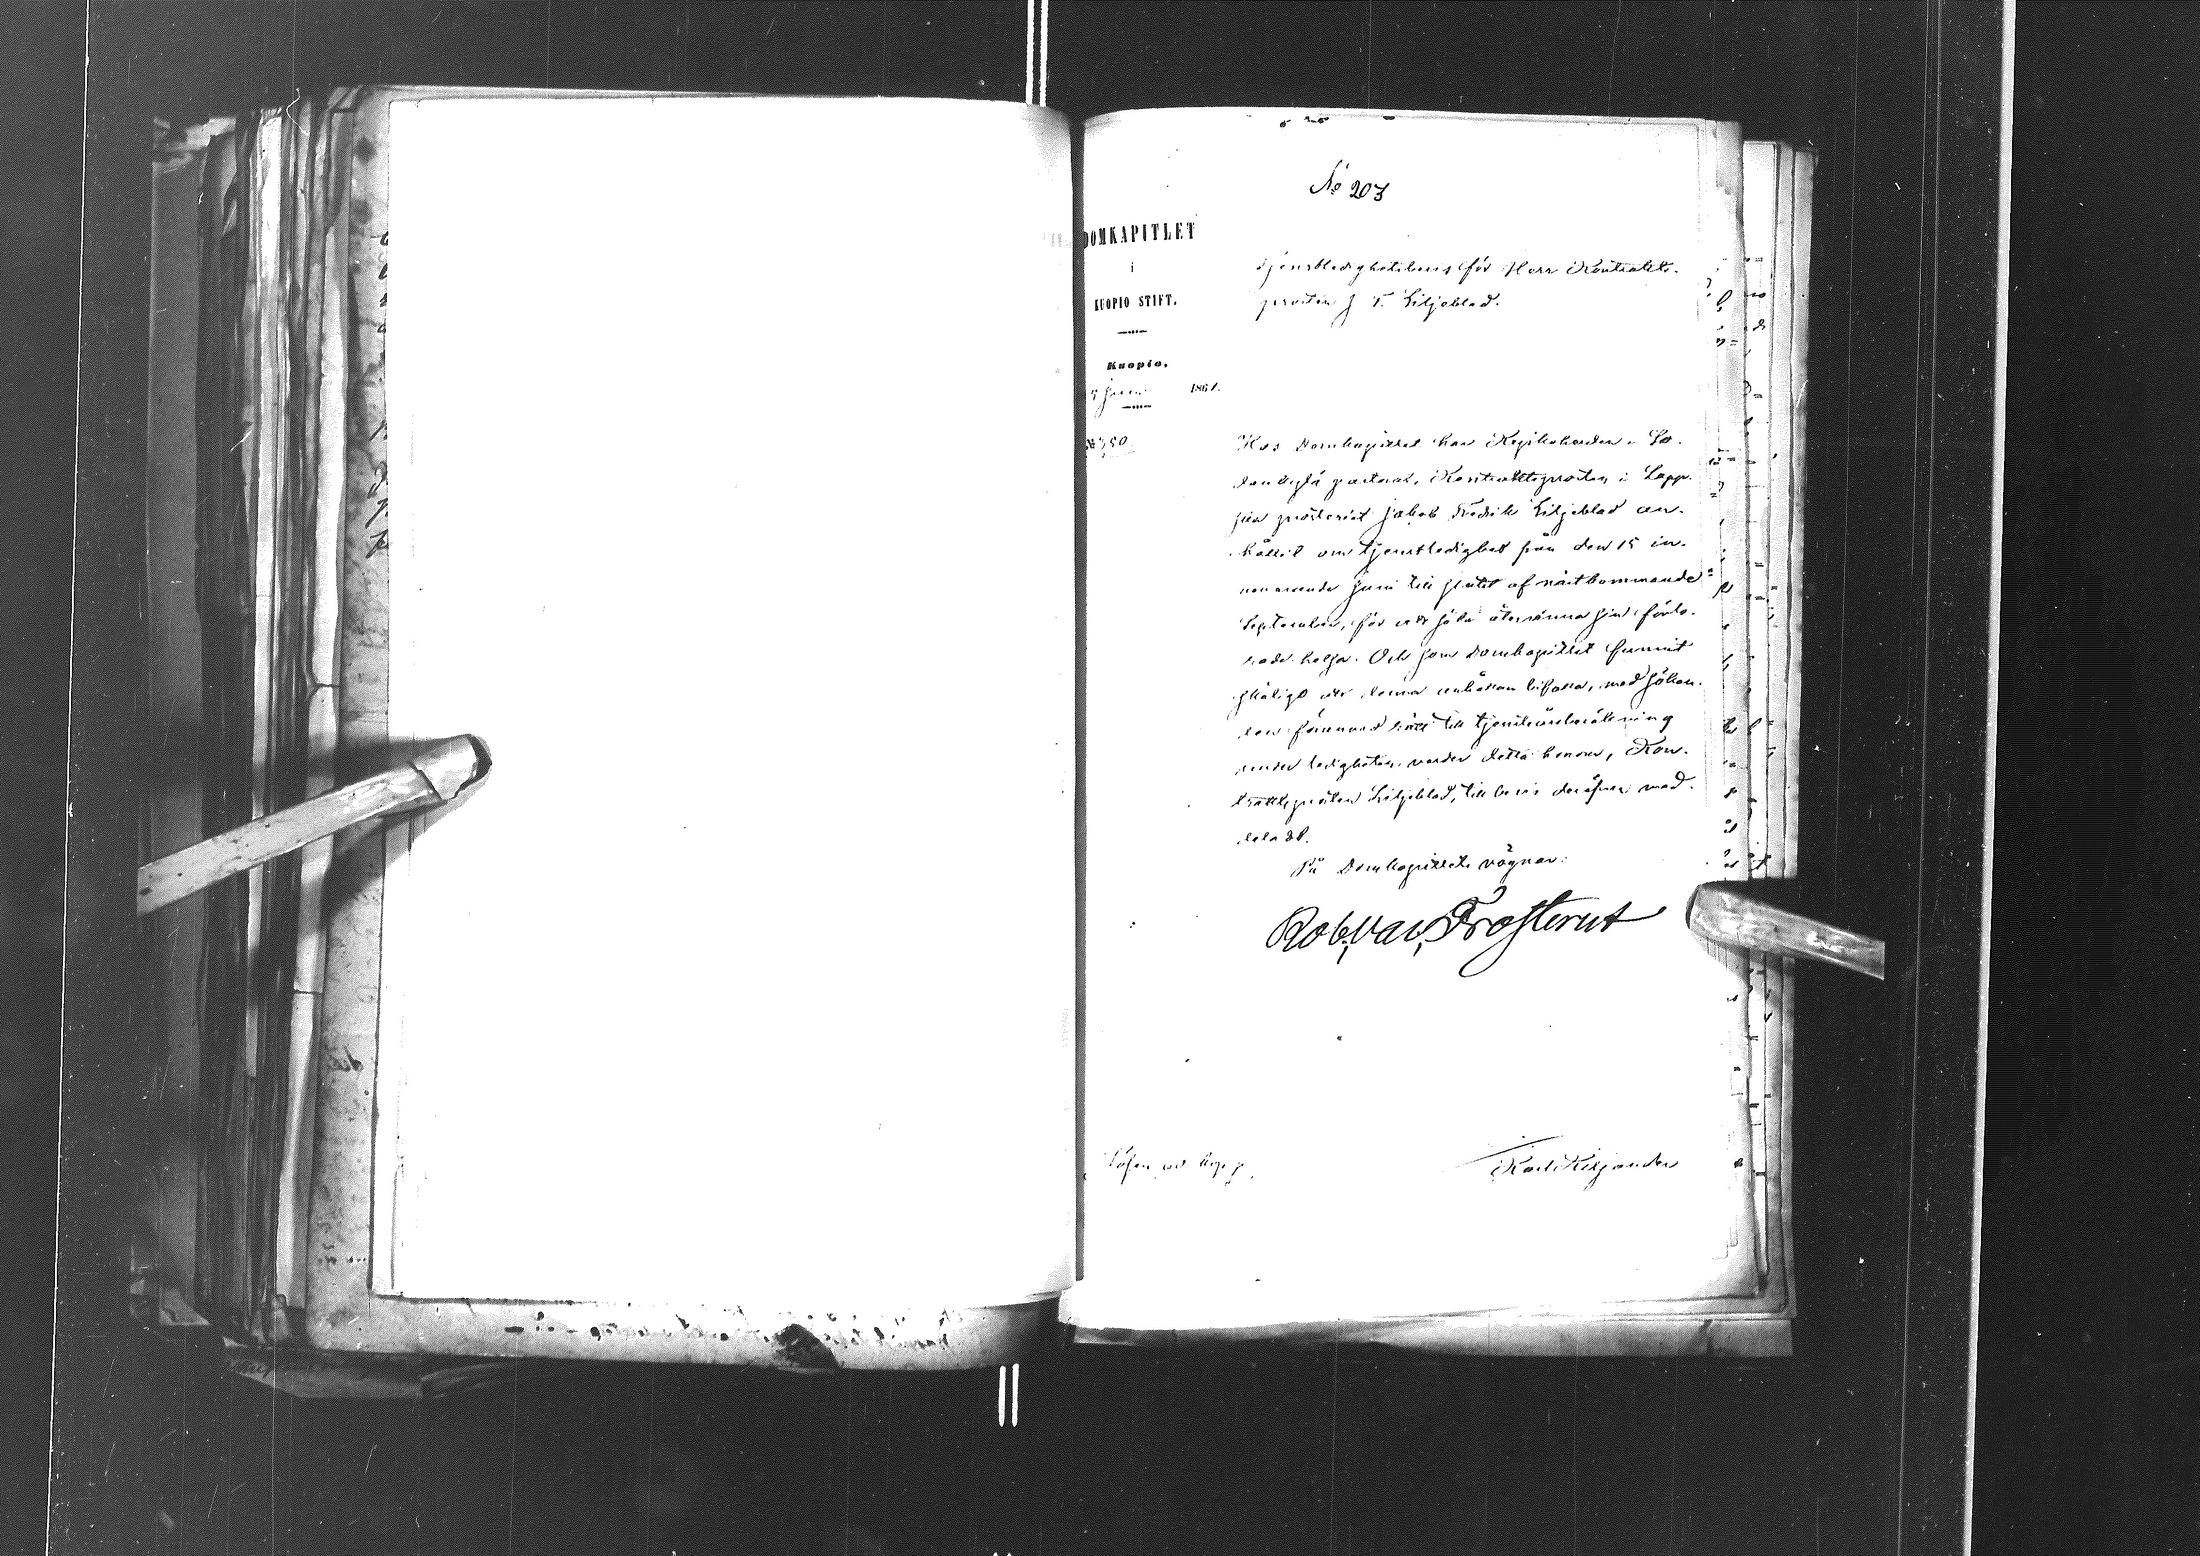 No 203
DOMKAPITLET
i
KUOPIO STIFT.
Kuopio,
Juni 1861.
No 750
Tjenstledighetsbevis för Herr Kontrakts-
prosten J F. Liljeblad.
Hos Domkapitlet har Kyrkoherden i So-
dankylä pastorat, Kontraktsprosten i Lapp-
ska prosteriet Jakob Fredrik Liljeblad an-
hållit om tjenstledighet från den 15 in-
nevarande Juni till slutet af nästkommande
September, för att söka återvinna sin förlo-
rade helsa. Och som Domkapitlet funnit
skäligt att denna anhållan bifalla, med sökan-
den förunnad rätt till tjenstårsberäkning
under ledigheten, varder detta honom, Kon-
traktsprosten Liljeblad, till bevis deröfver med-
deladt.
På Domkapitlets vägnar:
Rob. Val. Frosterus
Karl Kiljander